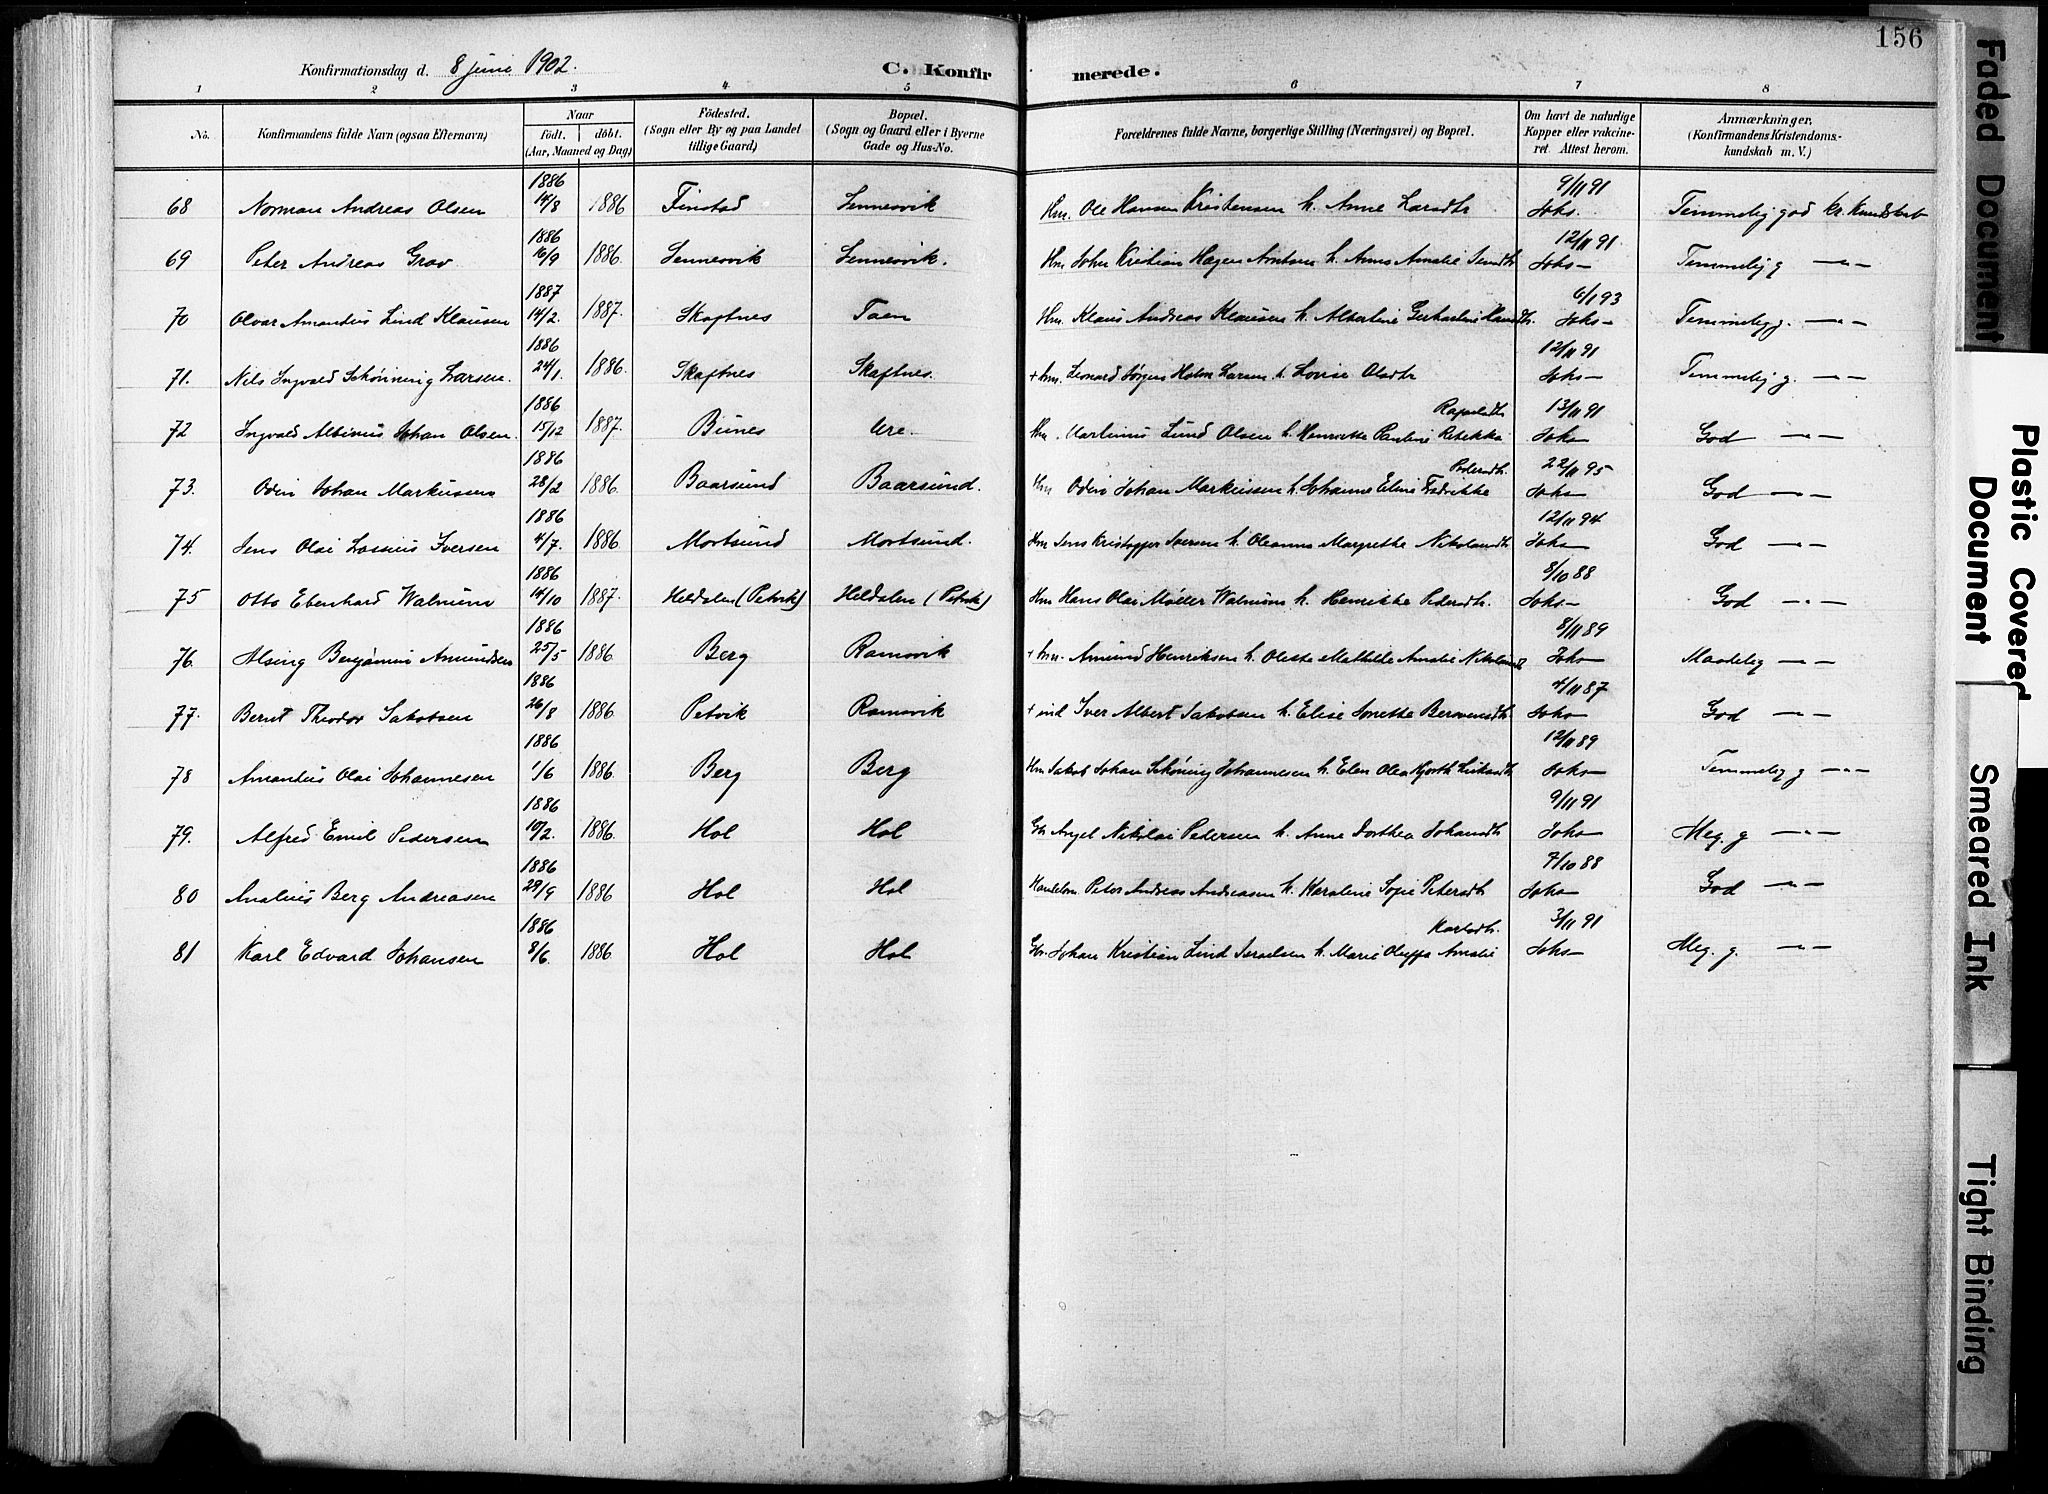 156
Konfirmationsdag d. 8 juni 1902.
C. Konfirmerede.
1 2 3 4 5 6 7 8
No. Konfirmandens fulde Navn (ogsaa Efternavn) Naar født. døbt. (Aar, Maaned og Dag) Fødested. (Sogn eller By og paa Landet tillige Gaard) Bopæl. (Sogn og Gaard eller i Byerne Gade og Hus-No. Forældrenes fulde Navne, borgerlige Stilling (Næringsvei) og Bopæl. Om havt de naturlige Kopper eller vakcineret. Attest herom. Anmærkninger, (Konfirmandens Kristendomskundskab m. V.)
68 Norman Andreas Olsen 1886 14/8 1886 Finstad Sennesvik Hm. Ole Hansen Kristensen h. Anne Larsdtr 9/11 91 Joks. Temmelig god kr. Kundskab
69 Peter Andreas Grav 1886 16/9 1886 Sennesvik Sennesvik. Hm John Kristian Hagen h. Anne Amalie 12/11 91 Joks— Temmelig g —„—
70 Olvar Amandus Lind Klausen 1887 14/2. 1887. Skaftnes Taen Hm. Klaus Andreas Klausen h. Albertine 6/1 93 Joks— Temmelig g. —„—
71. Nils Ingvald Schönning Larsen. 1886 24/1. 1886. Skaftnes Skaftnes. + hm. Leonard Jørgen Holm Larsen h. Lovise Olsdtr 12/11 91 Joks— Temmelig g. —„—
72 Ingvald Albinus Johan Olsen. 1886 15/12 1887. Bünes Ure. Hm. Martinus Lund Olsen h. Henriette Pauline Rebekka 13/11 91 Joks— God —„—
73. Odin Johan Markussen 1886 28/2 1886. Baarsund Baarsund. Hm Odin Johan Markussen h. Johanne Eline Fredrikke Pedersdtr. 22/11 95 Joks— God —„—
74. Jens Olai Lossius Iversen 1886 4/7. 1886 Mortsund Mortsund. Hm Jens Kristoffer Iversen h. Oleanna Margrethe 12/11 94 Joks— God —„—
75 Otto Ebenhard Walnum 1886 14/10 1887. Heldalen (Petvik) Heldalen (Petvik) Hm Hans Olai Møller Walnum h. Henrikke Pedersdtr. 8/10 88 Joks— God —„—
76. Alsing Benjamin Amundsen 1886 25/5 1886 Berg Ramsvik + hm. Amund Henriksen h. Oleste Mathilde Amalie 8/11 89 Joks— Maadelig —„—
77. Bernt Theodor Jakobsen 1886 26/8 1886. Petvik Ramsvik + ind Iver Albert Jakobsen h. Elise 4/11 87 Joks— God —„—
78 Amandus Olai Johannesen 1886 1/6 1886. Berg Berg Hm Jakob Johan Schöning Johannesen h. Elen Olea Hjorth 12/11 89 Joks— Temmelig g —„—
79. Alfred Emil Pedersen 1886 10/2. 1886. Hol Hol Gbr Angel Nikolai Pedersen h. Anne Dorthea Johansdtr 9/11 91 Joks— Meg. g —„—
80 Analius Berg Andreasen 1886 29/9 1886 Hol Hol Handelsm. Peter Andreas Andreasen h. Karoline Sofie Petersdtr 7/10 88 Joks— God —„—
81 Karl Edvard Johansen 1886 8/6. 1886 Hol Hol Gbr. Johan Kristian Lind Israelsen h. Marie Oluffa Amalie Karlsdtr. 3/11 91 Joks— Meg. g. —„—
Faded Document
Plastic Covered Document
Smeared Ink
Tight Binding